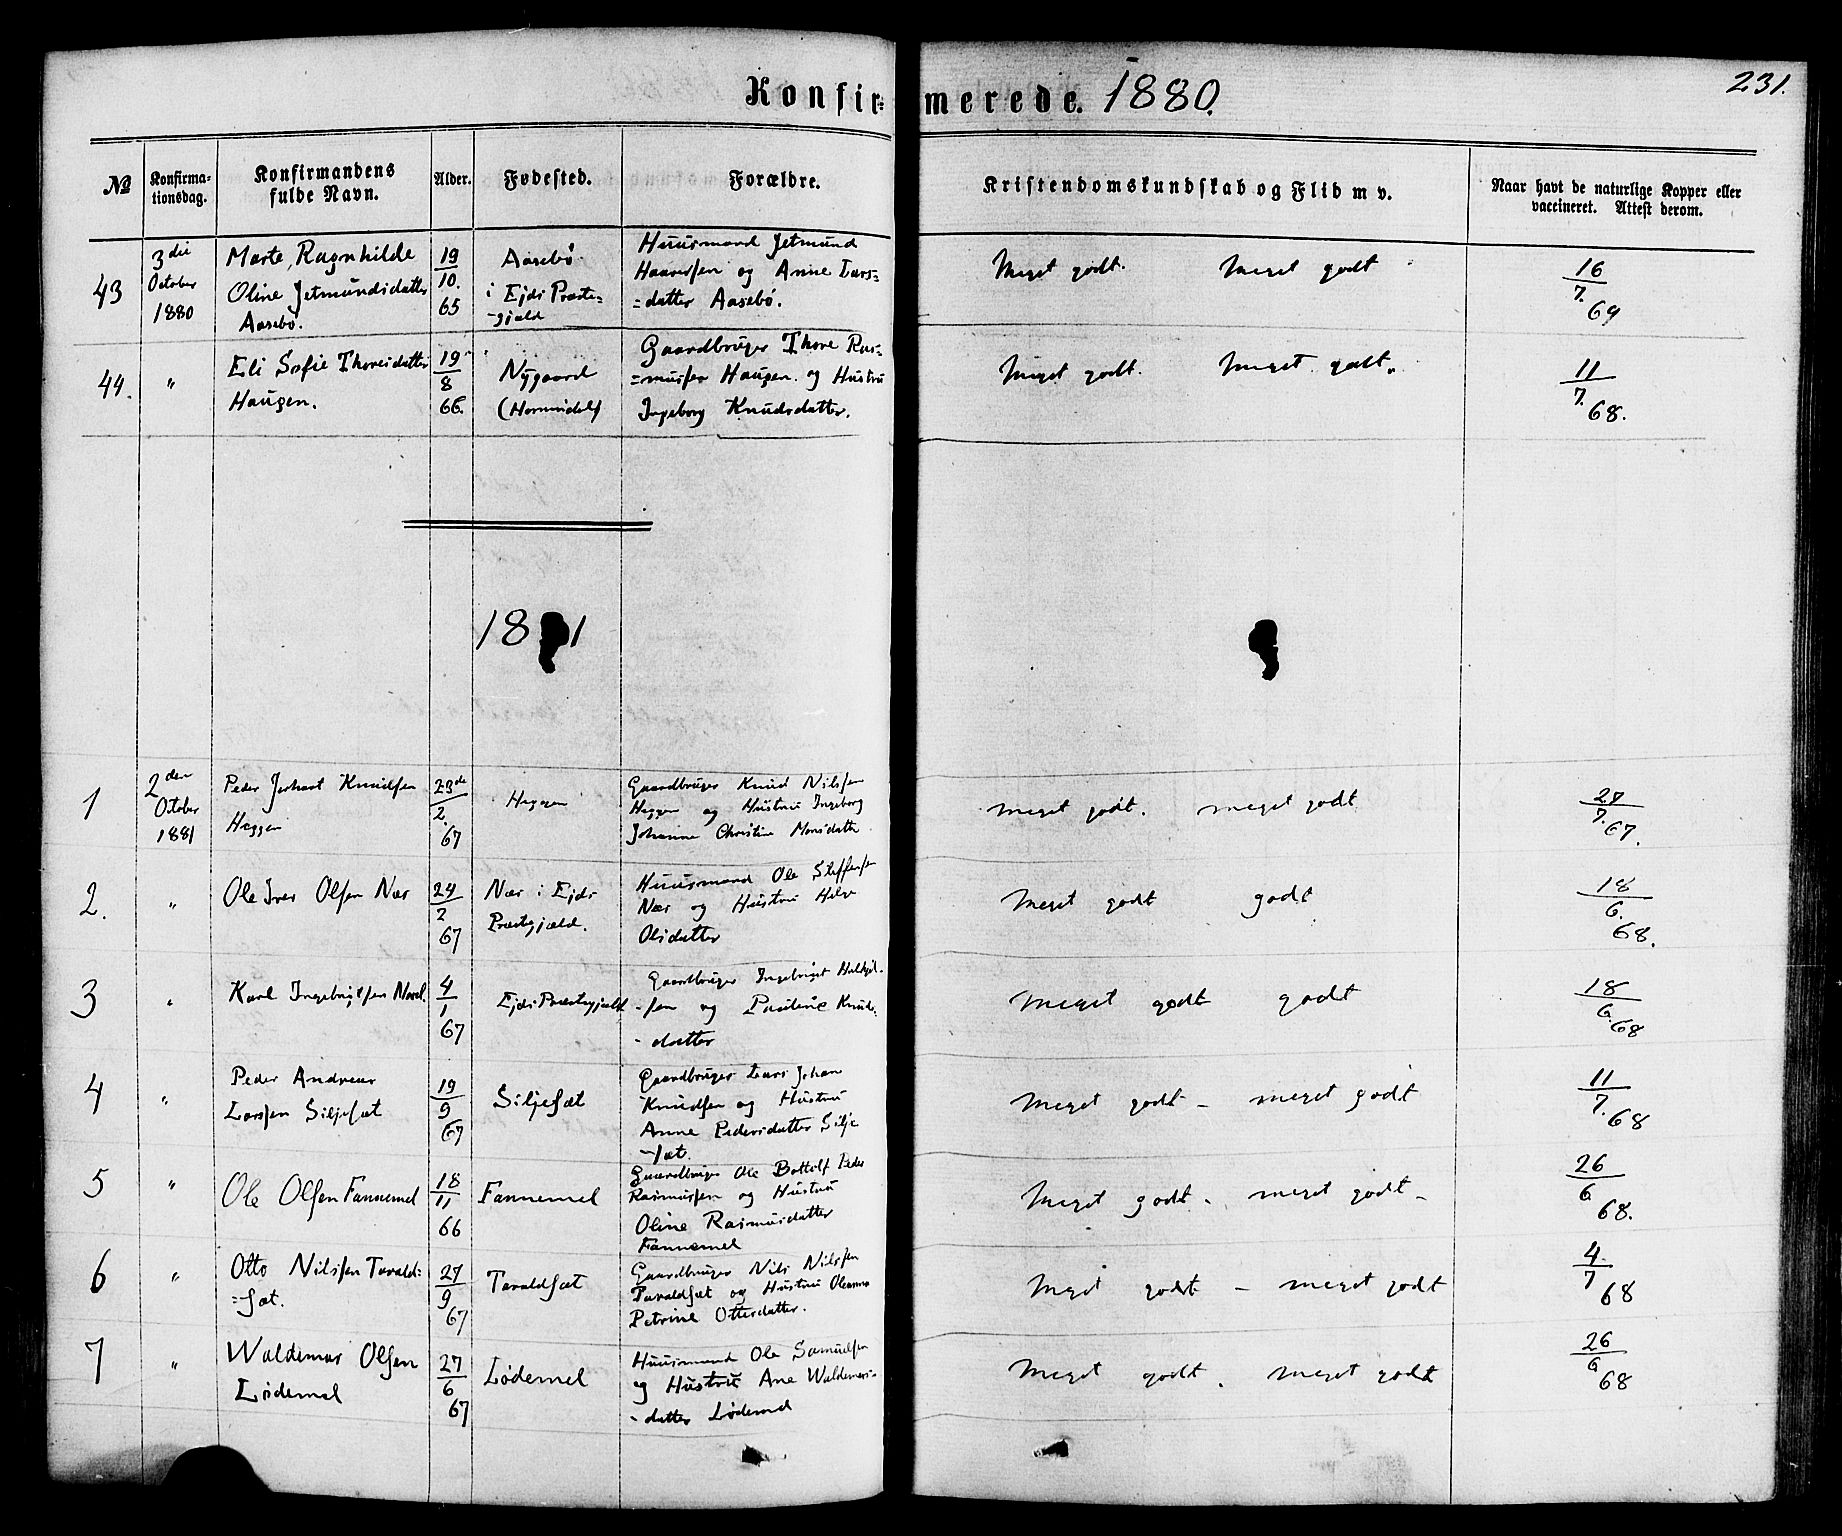 Konfirmerede. 1880.
231.
No
Konfirmationsdag.
Konfirmandens fulde Navn.
Alder.
Fødested.
Forældre.
Kristendomskundskab og Flid m v.
Naar havt de naturlige Kopper eller vaccineret. Attest derom.
43
3die October 1880
Marte, Ragnhilde
Oline Jetmundsdatter
Aasebø.
19/10. 65
Aasebø
i Ejds Præste-
-gjæld
Huusmand Jetmund
Haaversen og Anne Lars=
=datter Aasebø.
Meget godt. Meget godt
16/7. 69
44.
"
Eli Sofie Thoresdatter
Haugen.
19/8 66.
Nygaard
(Hornindal)
Gaardbruger Thore Ras=
=mussen Haugen. og Hustru
Ingeborg Knudsdatter.
Meget godt. Meget godt.
11/7. 68.
18 1
1
2den October 1881
Peder Knudsen
Heggen
23de/2. 67
Heggen
Gaardbruger Knud Nilssen
Heggen og Hustru Ingeborg
Johanne Christine Monsdatter
meget godt. meget godt
/7. 67.
2.
"
Ole Iver Olsen Nær
24/2 67
Nær i Ejds
Præstegjæld.
Huusmand Ole Steffensen
Nær og Hustru
Olsdatter
Meget godt godt
18/6. 68.
3
"
Karl Ingebrigtsen
4/1 67
Ejds Præstegjæld
Gaardbruger Ingebrigt
-sen og Pauline Knuds-
-datter
Meget godt godt
18/6. 68
4
"
Peder Andreas
Larssen Siljesæt
19/9 67
Siljesæt
Gaardbruger Lars Johan
Knudsen og Hustru
Anne Pedersdatter Silje
-sæt.
Meget godt - meget godt
11/7. 68
5
"
Ole Olsen Fannemel
18/11 66
Fannemel
Gaardbruger Ole Bottolf Peder
Rasmussen og Hustru
Oline Rasmusdatter
Fannemel
Meget godt - meget godt -
26/6 68.
6
"
Otto Nilssen Tavald=
=sæt.
27/9 67
Tavaldsæt
Gaardbruger Nils Nilssen
Tavaldsæt og Hustru Oleanna
Petrine Ottersdatter.
Meget godt - meget godt
4/7 68
7
"
Waldemar Olsen
Lødemel
27/6 67
Lødemel
Huusmand Ole Samuelsen
og Hustru Ane Waldemars-
-datter Lødemel
Meget godt. meget godt
26/6 68